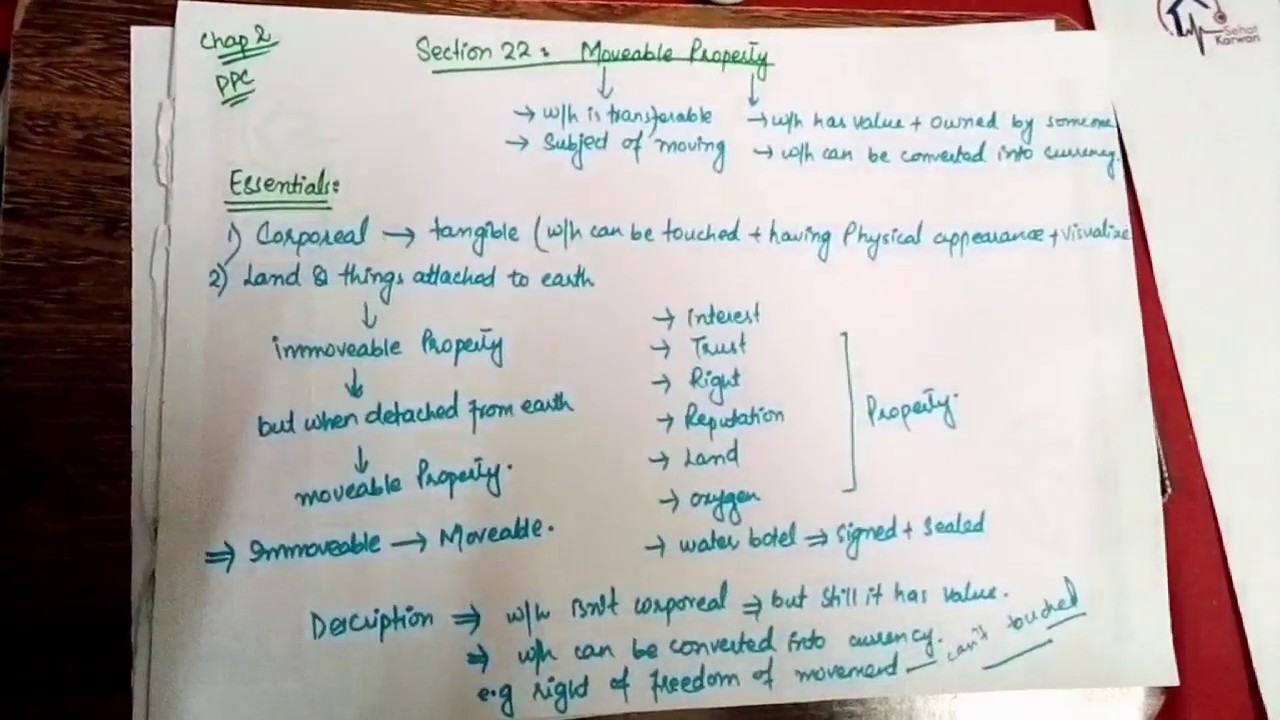 Chap 2
PPC
Section 22: Moveable Property
→ w/h is transferable
→ Subject of moving
→ w/h has value + owned by someone
→ w/h can be converted into currency.
Essentials:
1) Corporeal → tangible (w/h can be touched + having Physical appearance + visualize
2) Land & things attached to earth
↓
immoveable Property
↓
but when detached from earth
↓
moveable Property.
⇒ Immoveable → Moveable.
→ Interest
→ Trust
→ Right
→ Reputation
→ Land
→ oxygen
Property.
→ water botel ⇒ signed + sealed
Description ⇒ w/h isn't corporeal ⇒ but still it has value.
⇒ w/h can be converted into currency.
e.g right of freedom of movement — can't touched
Sehat
Karwan